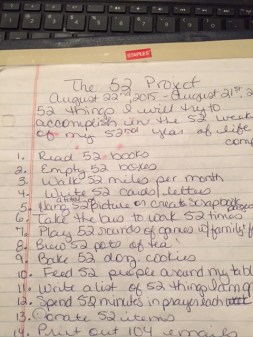 STAPLES
The 52 Project
August 22nd 2015 - August 21st, 2
52 things I will try to
accomplish in the 52 week
of my 52nd year of life
com
1. Read 52 books
2. Empty 52 boxes
3. Walk 52 miles per month
4. Write 52 cards/letters
5. Hang 52 pictures or create scrapbook pages
6. Take the bus to work 52 times
7. Play 52 rounds of games w/family/f
8. Brew 52 pots of tea!
9. Bake 52 doz. cookies
10. Feed 52 people around my tabl
11. Write a list of 52 things I am g
12. Spend 52 minutes in prayer each
13. Donate 52 items
14. Print out 104 emails